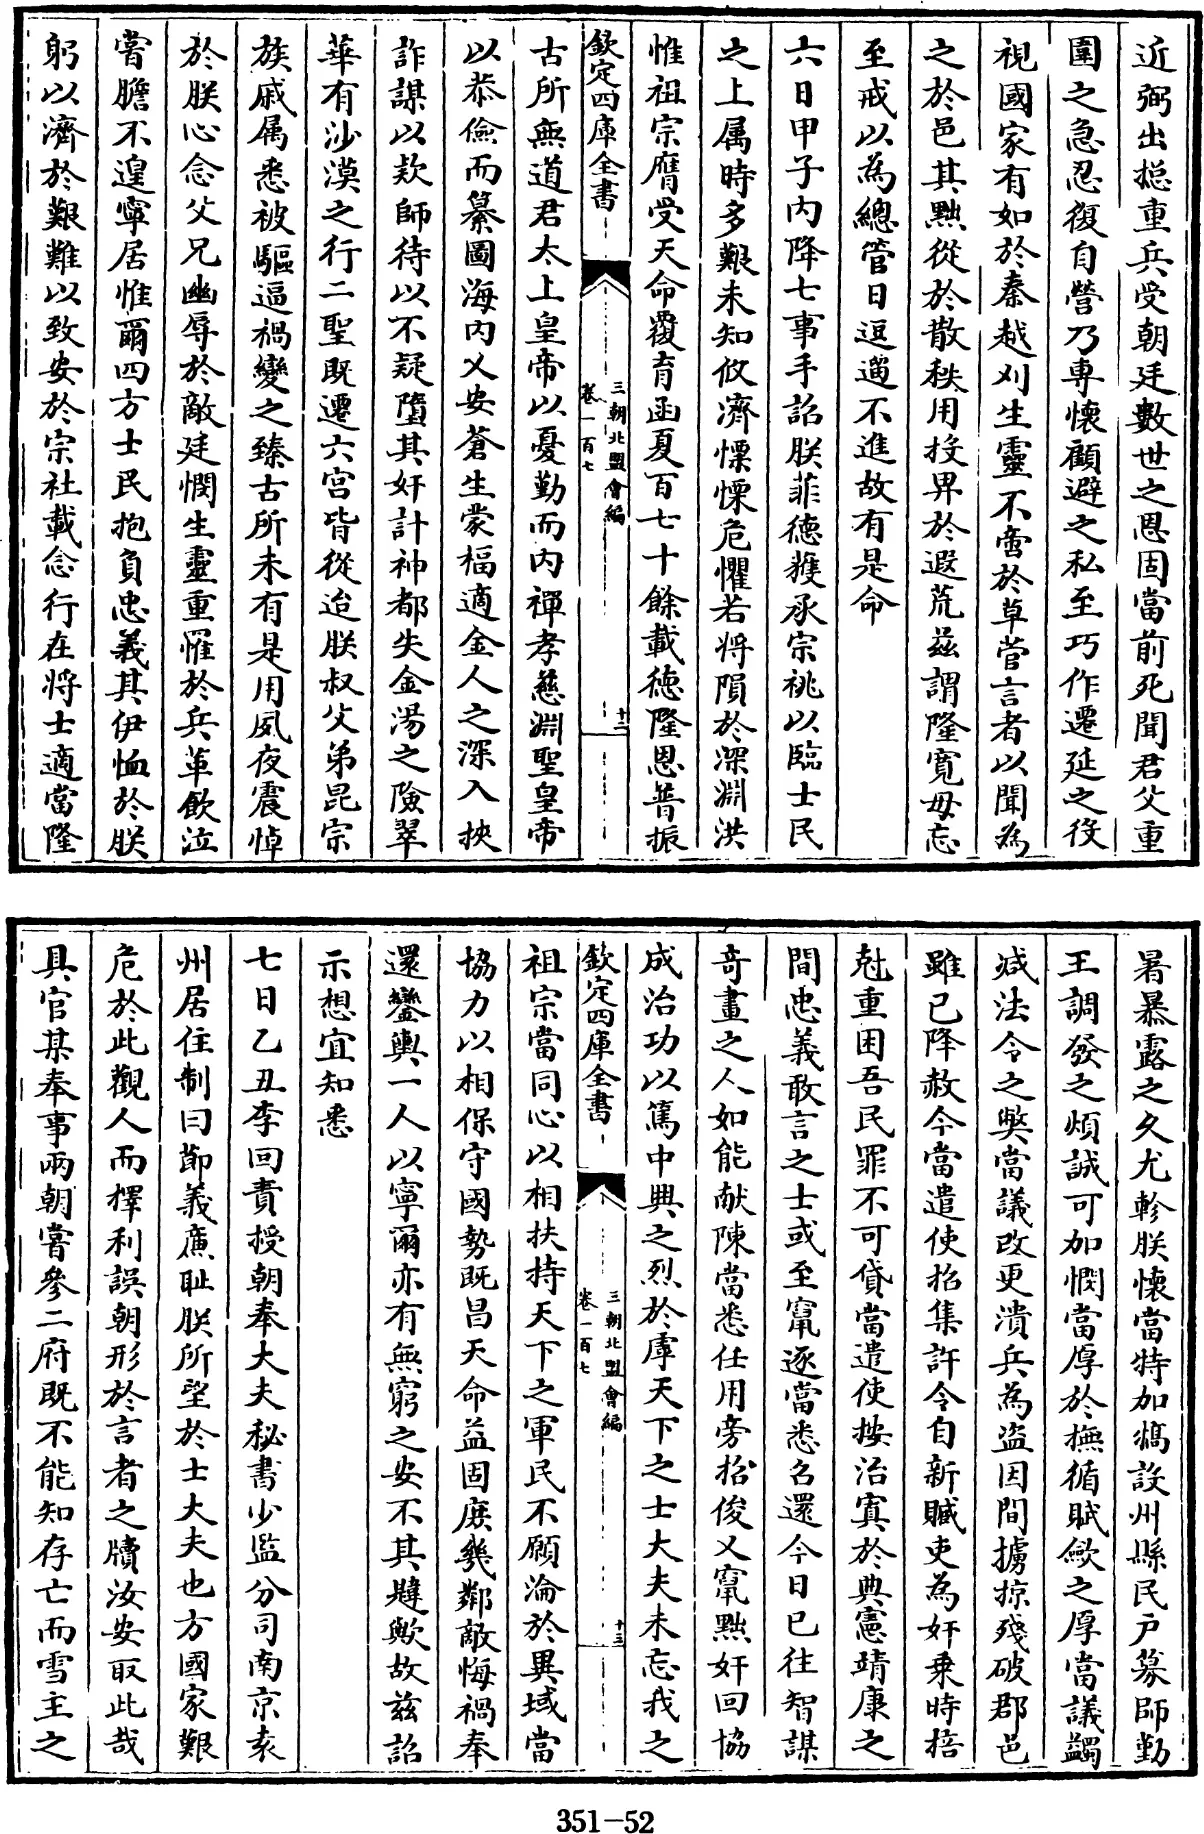 近弼出摠重兵受朝廷數世之恩固當前死聞君父重
圍之急忍復自營乃專懷顧避之私至巧作遷延之役
視國家有如於秦越刈生靈不啻於草菅言者以聞為
之於邑其黜從於散秩用投畀於遐荒茲謂隆寛毋忘
至戒以為總管日逗遛不進故有是命
六日甲子内降七事手詔朕菲德獲承宗祧以臨士民
之上属時多艱未知攸濟慄慄危懼若将隕於深淵洪
惟祖宗膺受天命覆育函夏百七十餘載德隆恩普振
欽定四庫全書
三朝北盟會編
卷一百七
十二
古所無道君太上皇帝以憂勤而内禪孝慈淵聖皇帝
以恭儉而纂圖海内乂安蒼生蒙福適金人之深入挾
詐謀以欵師待以不疑墮其奸計神都失金湯之險翠
華有沙漠之行二聖既遷六宫皆從迨朕叔父弟昆宗
族戚属悉被驅逼禍變之臻古所未有是用夙夜震悼
於朕心念父兄幽辱於敵廷憫生靈重罹於兵革飲泣
嘗膽不遑寧居惟爾四方士民抱負忠義其伊恤於朕
躬以濟於艱難以致安於宗社載念行在将士適當隆
暑暴露之久尤軫朕懷當特加犒設州縣民户募師勤
王調發之煩誠可加憫當厚於撫循賦歛之厚當議蠲
减法令之獘當議改更潰兵為盜因間擄掠殘破郡邑
雖已降赦今當遣使招集許令自新贓吏為奸乗時掊
尅重困吾民罪不可貸當遣使按治寘於典憲靖康之
間忠義敢言之士或至竄逐當悉召還今日已往智謀
奇畫之人如能献陳當悉任用旁招俊乂竄黜奸回協
成治功以篤中興之烈於虖天下之士大夫未忘我之
欽定四庫全書
三朝北盟會編
卷一百七
十三
祖宗當同心以相扶持天下之軍民不願淪於異域當
協力以相保守國勢既昌天命益固庶幾鄰敵悔禍奉
還鑾輿一人以寧爾亦有無窮之安不其韙歟故茲詔
示想宜知悉
七日乙丑李回責授朝奉大夫秘書少監分司南京袁
州居住制曰節義亷耻朕所望於士大夫也方國家艱
危於此觀人而擇利誤朝形於言者之牘汝安取此哉
具官某奉事兩朝嘗參二府既不能知存亡而雪主之
351-52